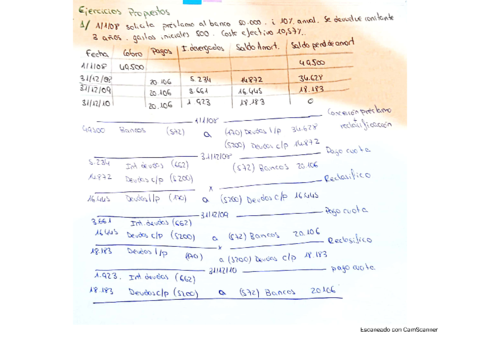 Ejercicios Propuestos
1/ 1/1/08 solicita préstamo al banco 50.000. i 10% anual. Se devuelve constante
3 años. gastos iniciales 500. Coste efectivo 10,577%.
Fecha Cobro Pagos I.devengados Saldo Amort. Saldo pend. de amort
1/1/08 49.500 49.500
31/12/08 20.106 5.234 14.872 34.628
31/12/09 20.106 3.661 16.445 18.183
31/12/10 20.106 1.923 18.183 0
1/1/08
49.500 Bancos (572) a (170) Deudas l/p 34.628
(5200) Deudas c/p 14.872
reclasificación
31/12/08 Pago cuota
5.234 Int deudas (662) (572) Bancos 20.106
14.872 Deudas c/p (5200)
x Reclasifico
16.445 Deudas l/p (170) a (5200) Deudas c/p 16.445
31/12/09 Pago cuota
3.661 Int deudas (662)
16.445 Deudas c/p (5200) a (572) Bancos 20.106
x Reclasifico
18.183 Deudas l/p (170) a (5200) Deudas c/p 18.183
31/12/10 pago cuota
1.923. Int deudas (662)
18.183 Deudas c/p (5200) a (572) Bancos 20.106
Escaneado con CamScanner